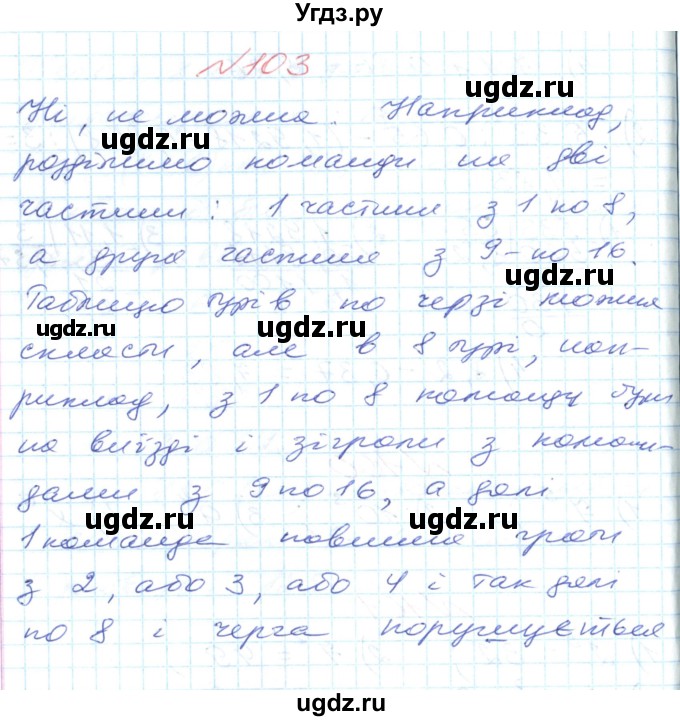 Угдз.ру
№103
Ні, не можна. Наприклад,
розділимо команди на дві
частини: 1 частина з 1 по 8,
а друга частина з 9-по 16.
Таблицю турів по черзі можна
скласти, але в 8 турі, нап-
риклад, з 1 по 8 команду були
на виїзді і зіграли з коман-
дами з 9 по 16, а далі
1 команда повинна грати
з 2, або 3, або 4 і так далі
по 8 і черга порушується
ugdz.ru
ugdz.ru
ugdz.ru
ugdz.ru
ugdz.ru
ugdz.ru
ugdz.ru
ugdz.ru
ugdz.ru
ugdz.ru
ugdz.ru